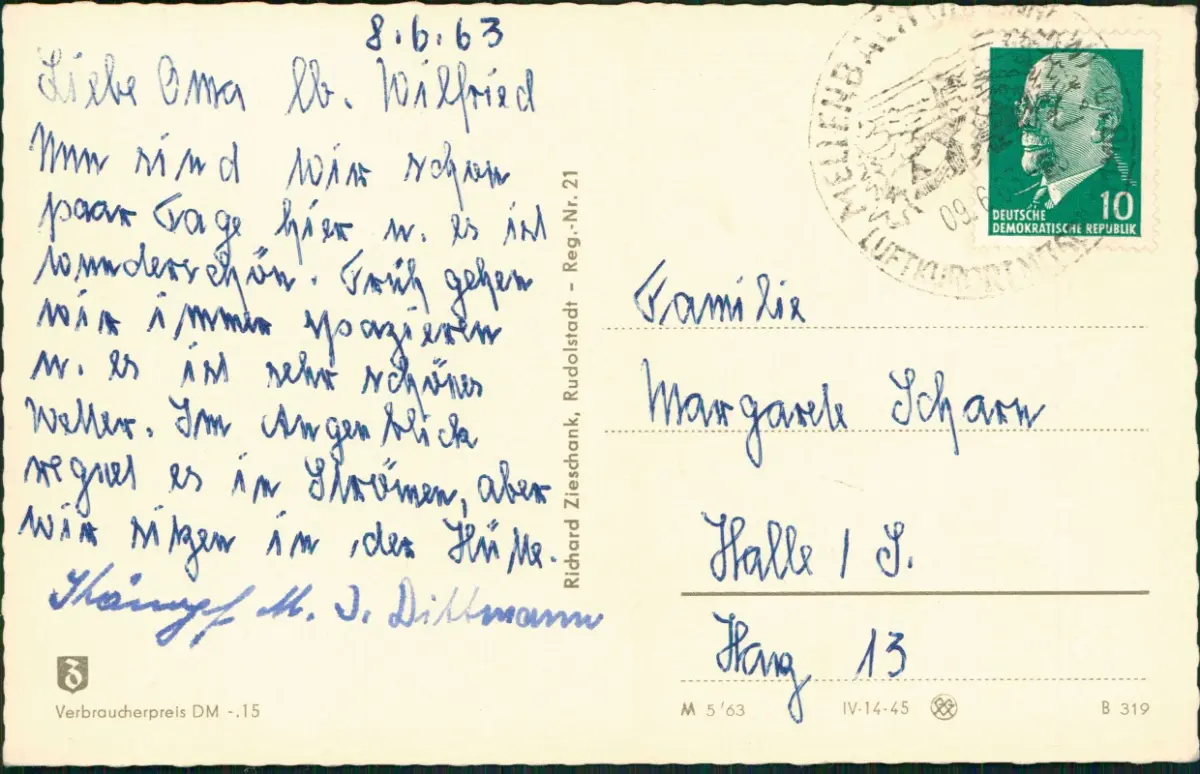 8.6.63
Liebe Oma lb. Wilfried
Nun sind wir schon
paar Tage hier u. es ist
wunderschön. Früh gehen
wir immer spazieren
u. es ist sehr schönes
Wetter. Im Augenblick
regnet es in Strömen, aber
wir sitzen in der Hütte.
M. J. Dittmann
Verbraucherpreis DM -.15
Richard Zieschank, Rudolstadt – Reg.-Nr. 21
MELLENBACH
LUFTKURORT
09.6
10
DEUTSCHE
DEMOKRATISCHE REPUBLIK
Familie
Margarete Scharn
Halle / S.
Harz 13
M 5'63 IV-14-45 B 319